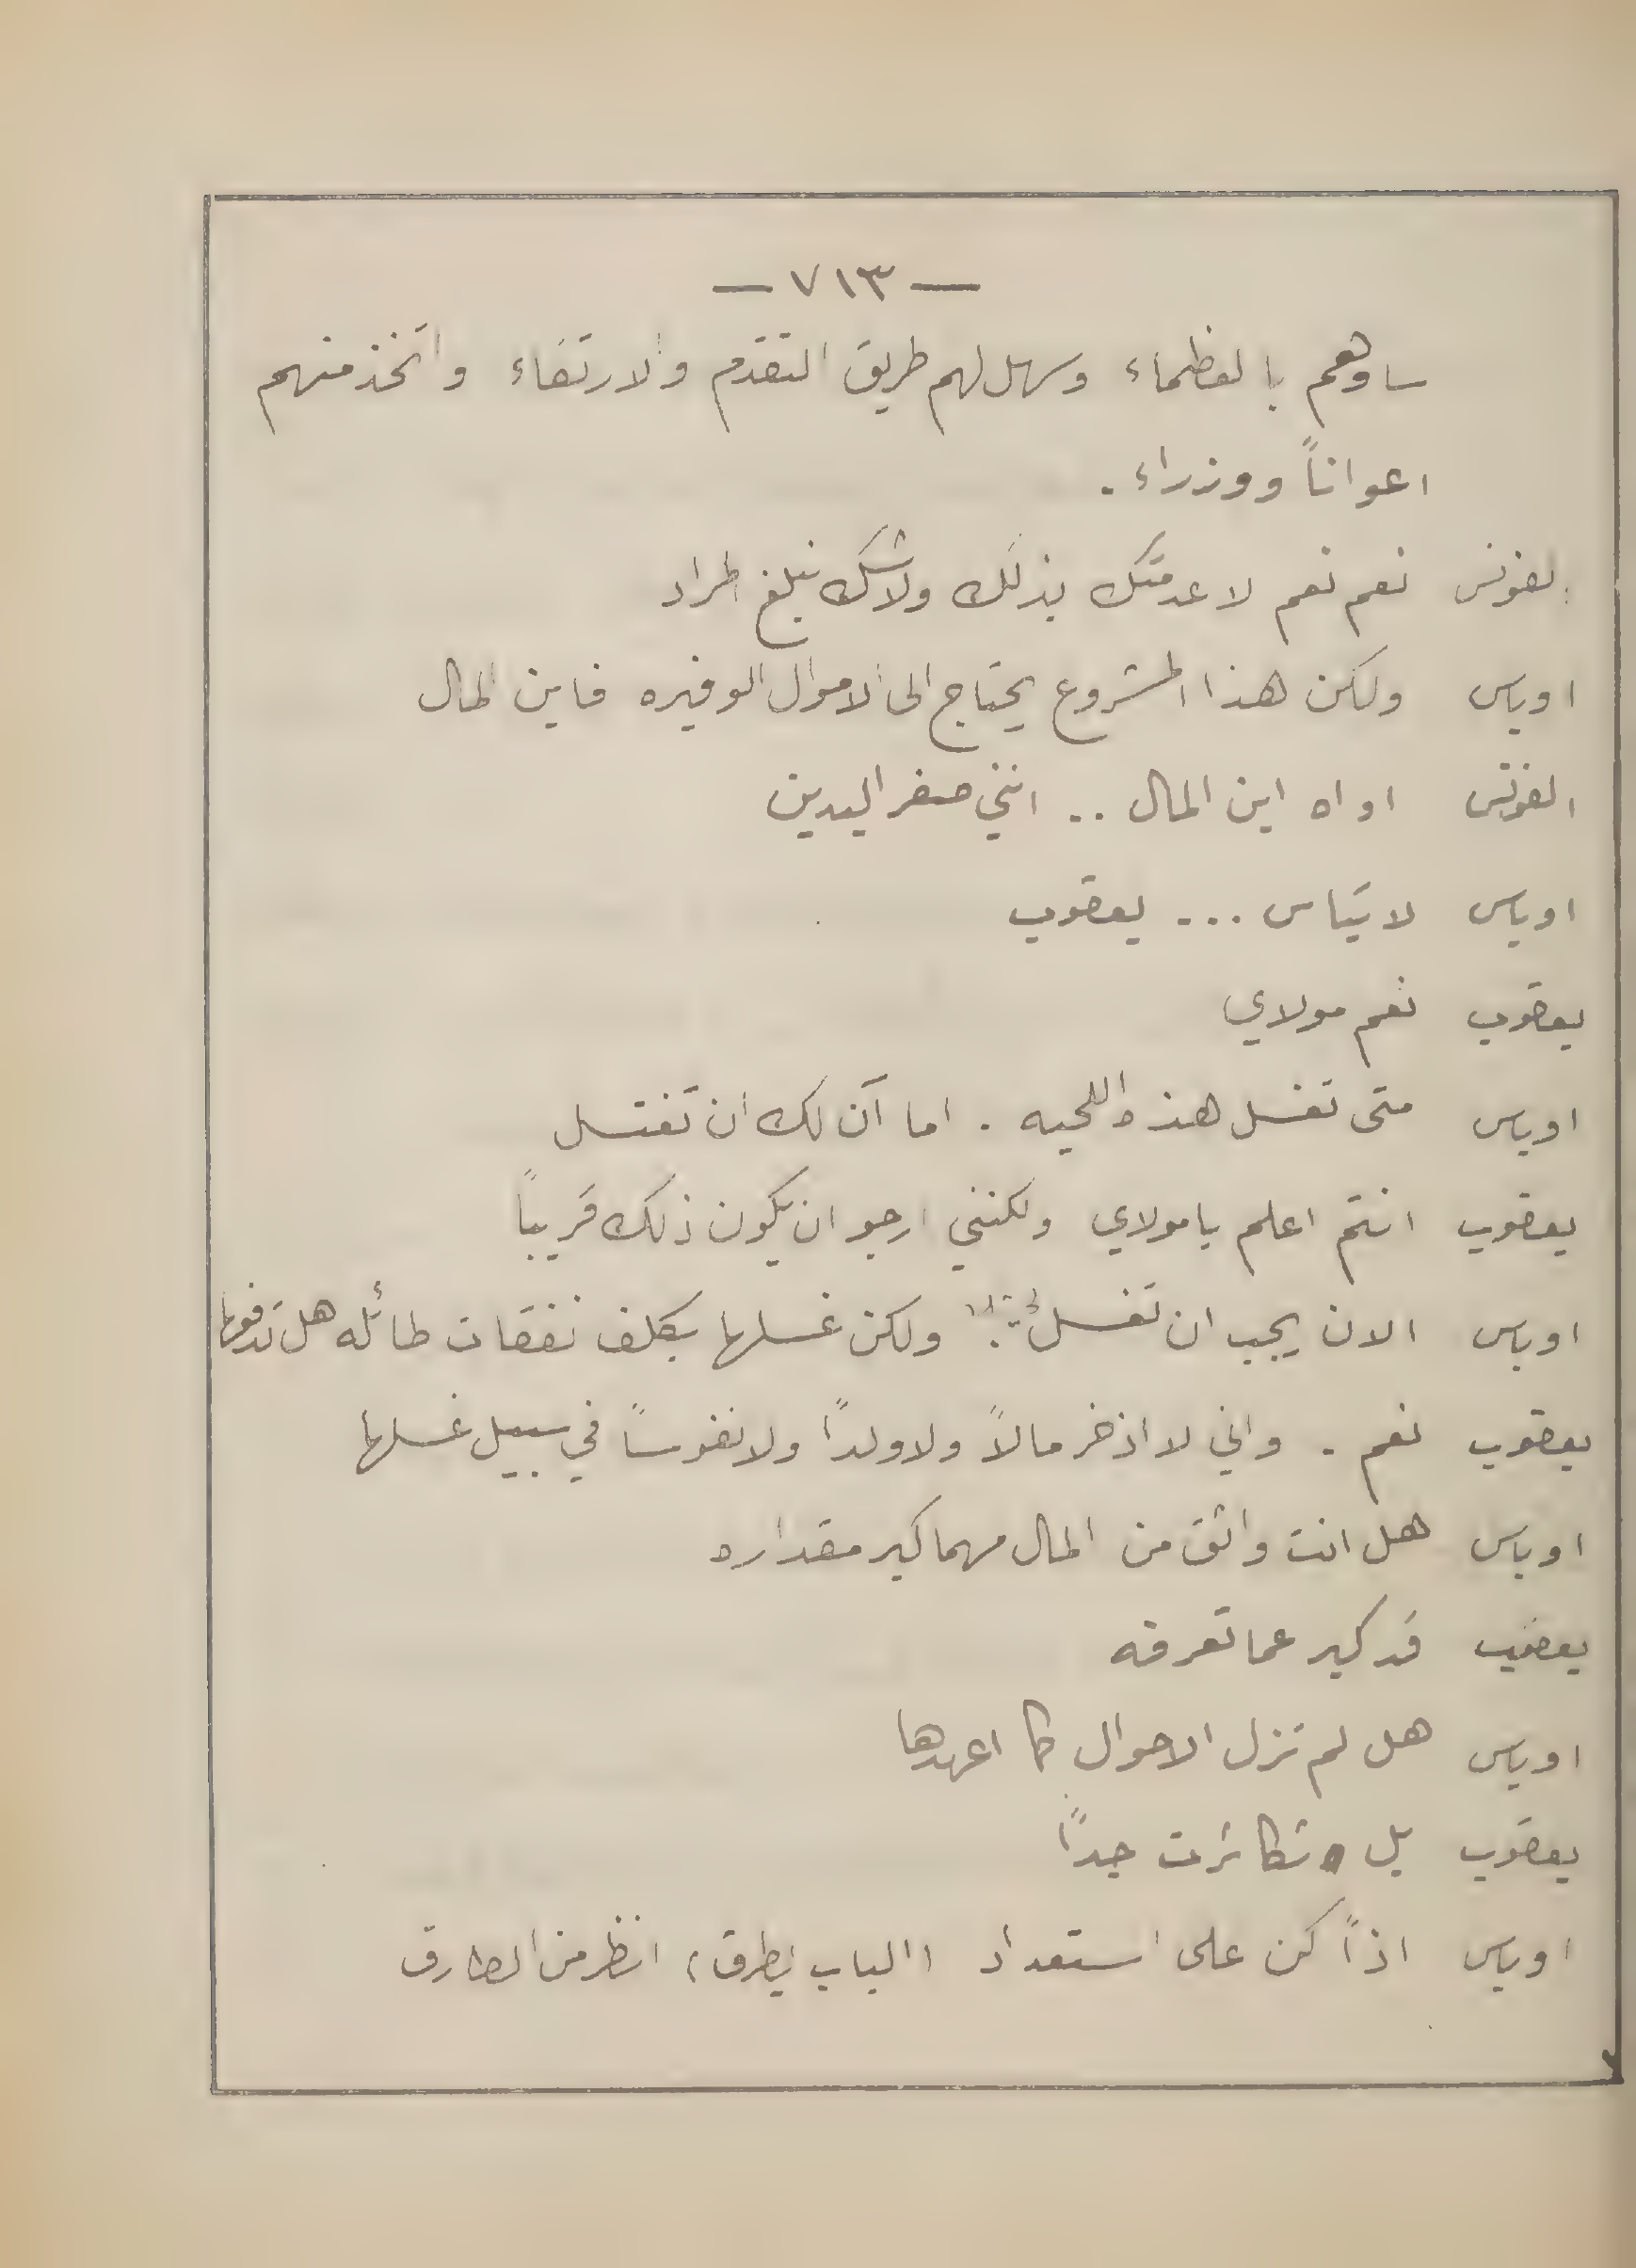 — ٧١٣ —
ساوهم بالعظماء وسهل لهم طريق التقدم والارتقاء واتخذ منهم
اعواناً ووزراء .
الفونس نعم نعم لا عدمتك بذلك ولاشك نبلغ المراد
اوباس ولكن هذا المشروع يحتاج الى الاموال الوفيره فاين المال
الفونس اواه اين المال .. انني صفر اليدين
اوباس لا تيأس ... يعقوب
يعقوب نعم مولاي
اوباس متى تغسل هذه اللحيه . اما آن لك ان تغتسل
يعقوب انتم اعلم يا مولاي ولكنني ارجو ان يكون ذلك قريباً
اوباس الان يجب ان تغسل ولكن غسلها يكلف نفقات طائله هل تدفعها
يعقوب نعم . واني لا اذخر مالاً ولا ولداً ولا نفوساً في سبيل غسلها
اوباس هل انت واثق من المال مهما كبر مقداره
يعقوب قد كبر عما تعرفه
اوباس هل لم تزل الاحوال كما اعهدها
يعقوب بل تكاثرت جداً
اوباس اذاً كن على استعداد ( الباب يطرق ) انظر من الطارق